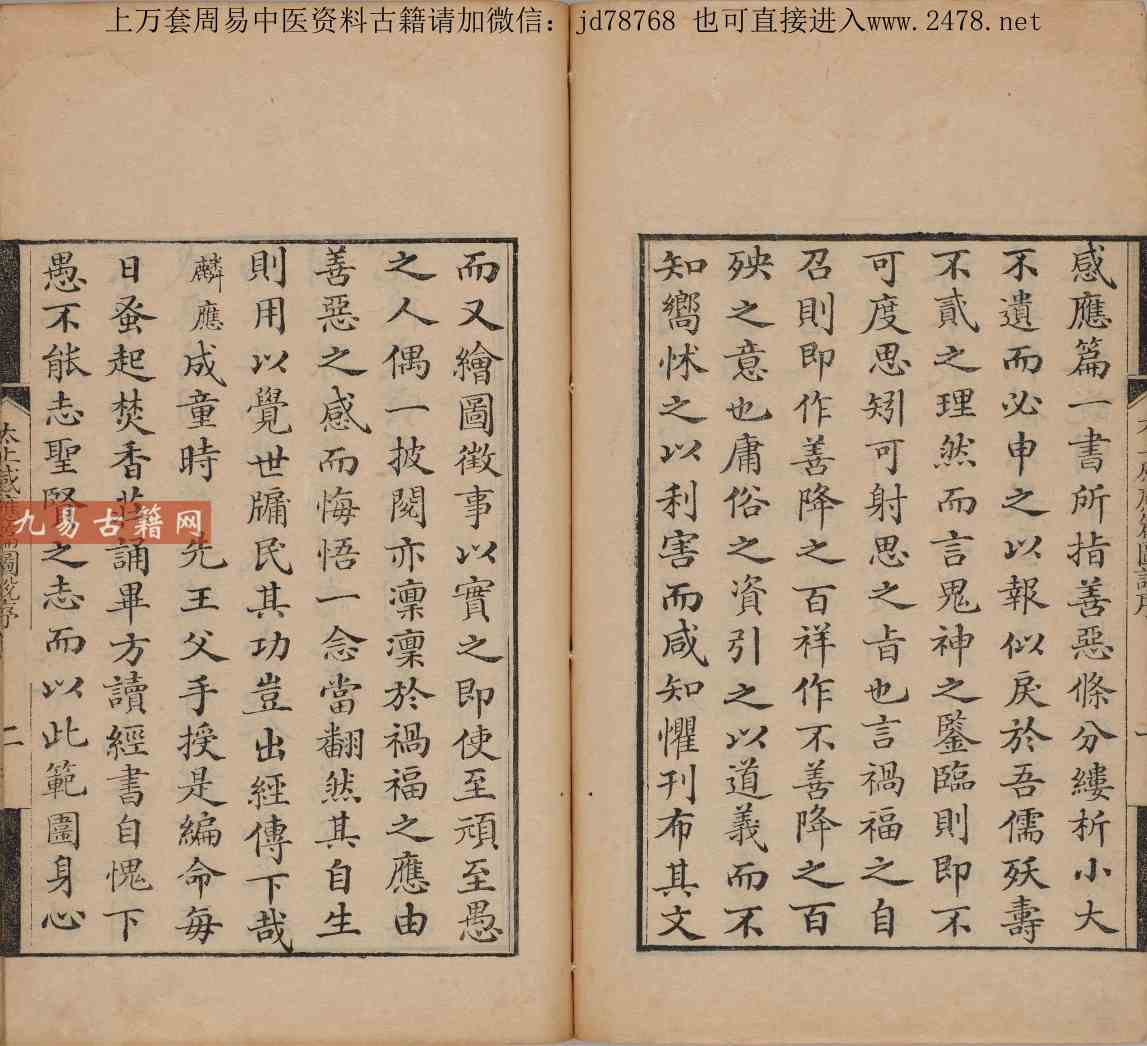 上万套周易中医资料古籍请加微信：jd78768 也可直接进入www.2478.net
感應篇一書所指善惡條分縷析小大
不遺而必申之以報似戾於吾儒殀壽
不貳之理然而言鬼神之鑒臨則即不
可度思矧可射思之旨也言禍福之自
召則即作善降之百祥作不善降之百
殃之意也庸俗之資引之以道義而不
知嚮怵之以利害而咸知懼刊布其文
而又繪圖徵事以實之即使至頑至愚
之人偶一披閱亦凜凜於禍福之應由
善惡之感而悔悟一念當翻然其自生
則用以覺世牖民其功豈出經傳下哉
麟應成童時先王父手授是編命每
日蚤起焚香莊誦畢方讀經書自愧下
愚不能志聖賢之志而以此範圍身心
太上感應篇圖說序
二
九易古籍网